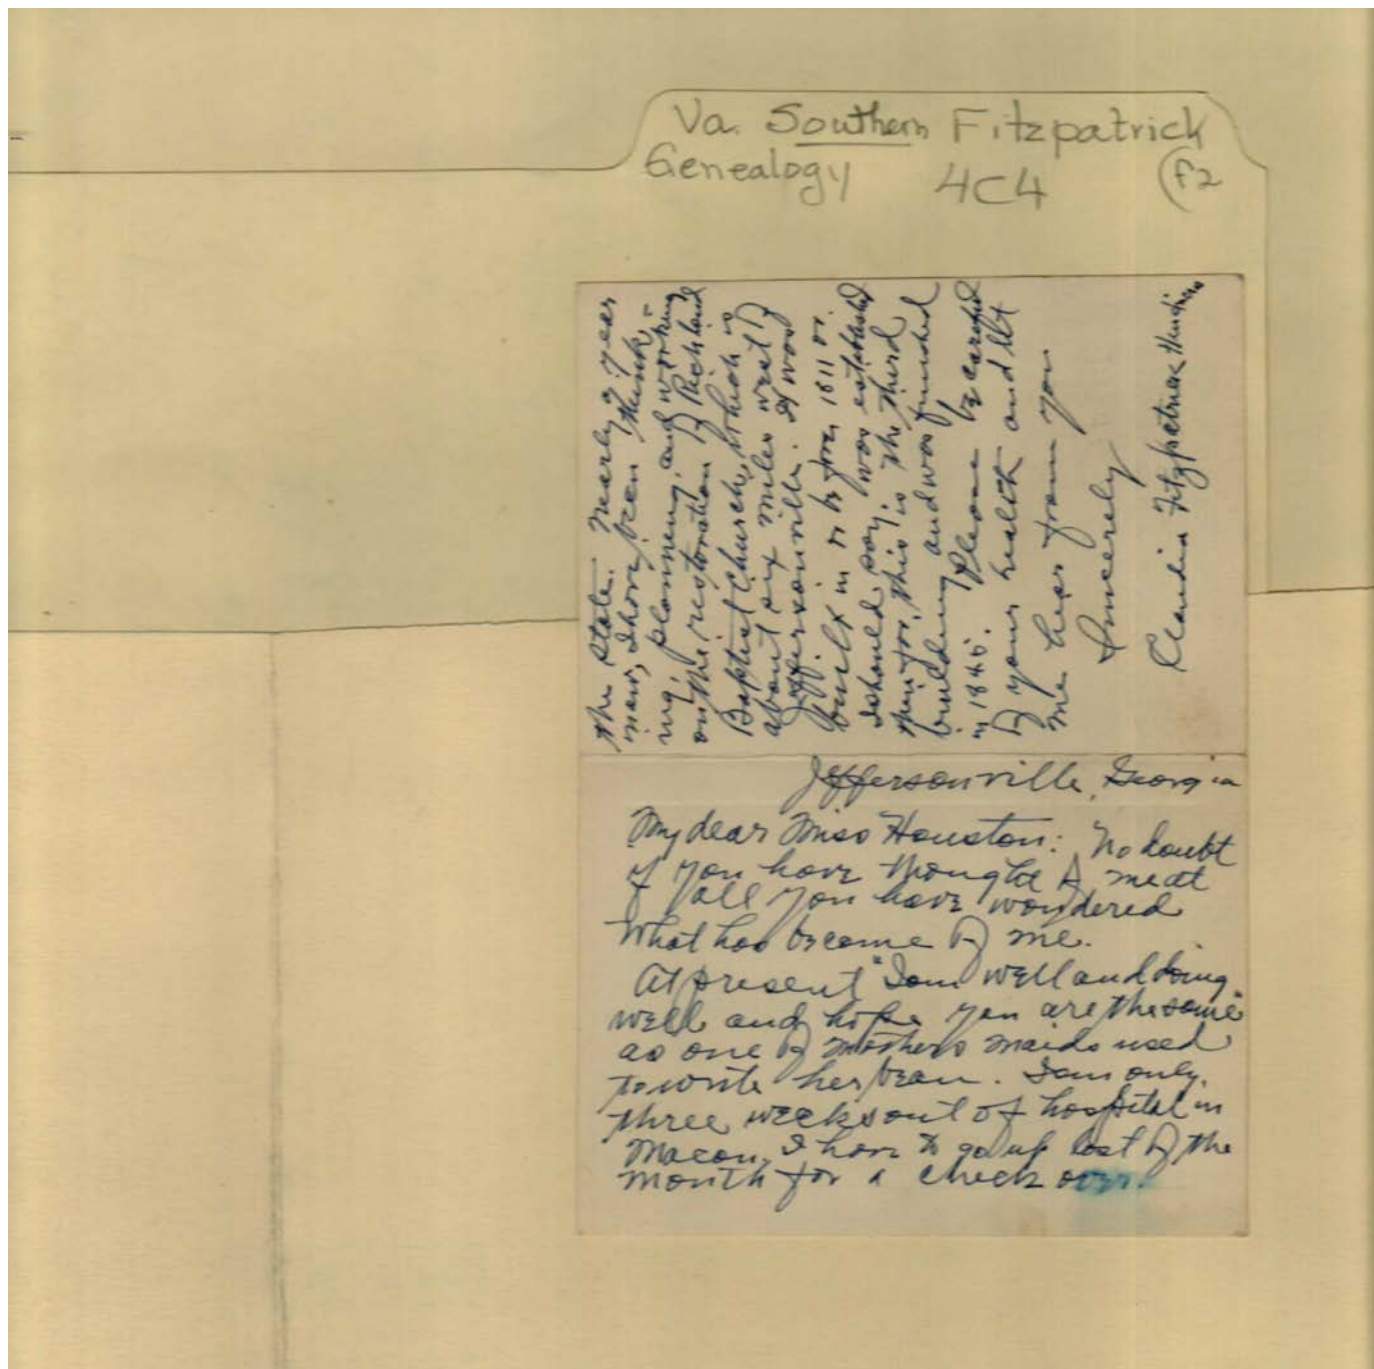 Va. Southern Fitzpatrick
Genealogy 4C4 (F2
Jeffersonville, Georgia
My dear Miss Houston: No doubt
if you have thought of me at
all you have wondered
what has become of me.
At present "I am well and doing
well and hope you are the same"
as one of mothers maids used
to write her beau. I am only
three weeks out of hospital in
Macon, I have to go up last of the
month for a check over.
the State. Nearly a year
now, I have been think-
ing, planning, and working
on the restoration of Richland
Baptist Church, which is
about six miles west of
Jeffersonville. It was
built in or before 1811 or
I should say was established
then for this is the third
building and was finished
in 1845. Please be careful
of your health and let
me hear from you
Sincerely
Claudia Fitzpatrick